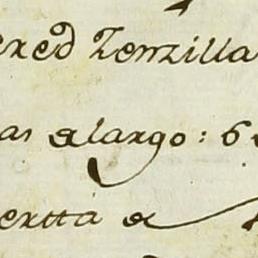 ered Zenzilla
as alargo: 6
ertta a